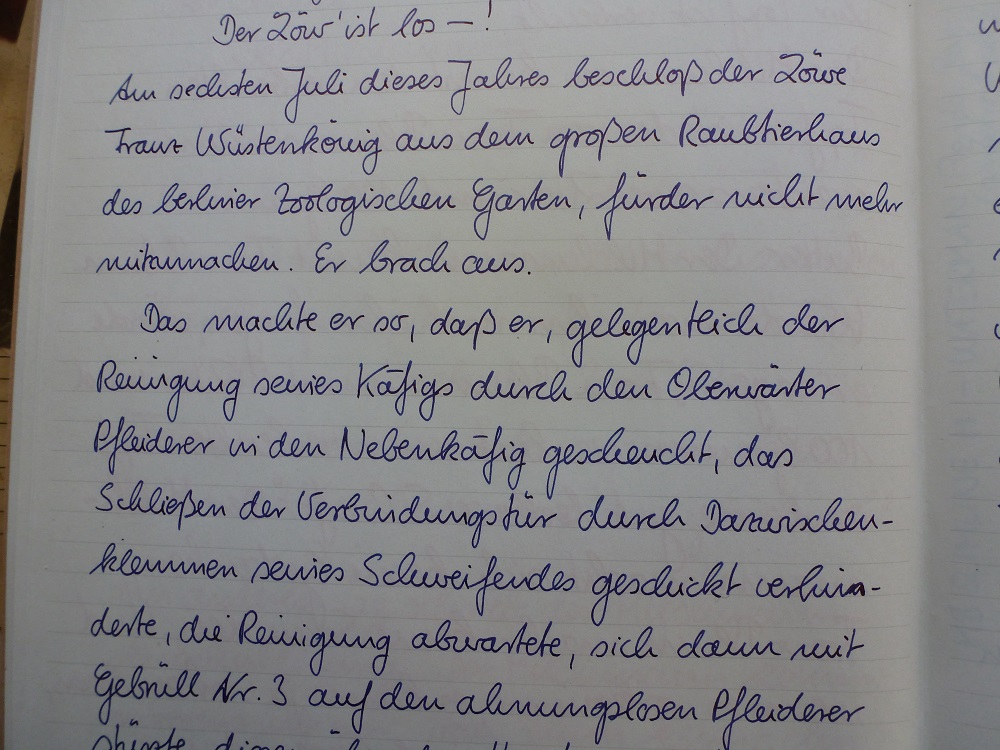 Der Löw' ist los —!
Am sechsten Juli dieses Jahres beschloß der Löwe
Franz Wüstenkönig aus dem großen Raubtierhaus
des berliner Zoologischen Garten, fürder nicht mehr
mitzumachen. Er brach aus.
Das machte er so, daß er, gelegentlich der
Reinigung seines Käfigs durch den Oberwärter
Pfleiderer in den Nebenkäfig gescheucht, das
Schließen der Verbindungstür durch Dazwischen-
klemmen seines Schweifendes geschickt verhin-
derte, die Reinigung abwartete, sich dann mit
Gebrüll Nr. 3 auf den ahnungslosen Pfleiderer